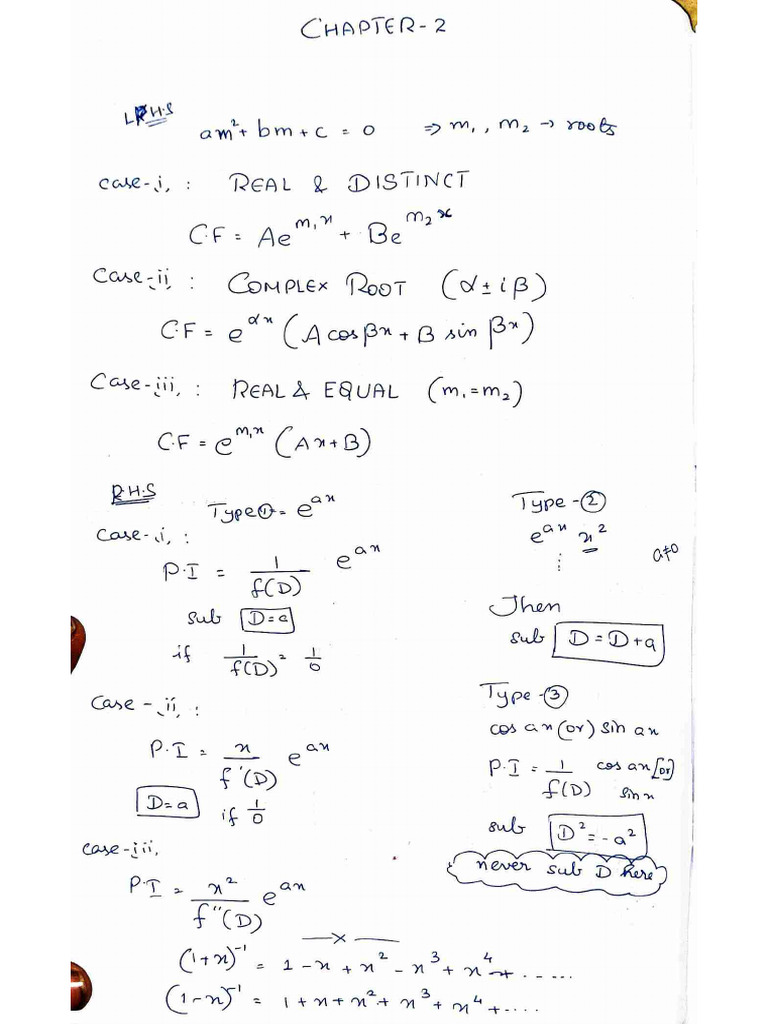 CHAPTER-2
L.H.S
am² + bm + c = 0 ⇒ m₁, m₂ → roots
case-i, : REAL & DISTINCT
C.F = Ae^{m₁x} + Be^{m₂x}
Case-ii : COMPLEX ROOT (α ± iβ)
C.F = e^{αx} (A cos βx + B sin βx)
Case-iii, : REAL & EQUAL (m₁=m₂)
C.F = e^{m₁x} (Ax + B)
R.H.S
Type① = e^{ax}
Case-i, :
P.I = 1/f(D) e^{ax}
sub D=a
if 1/f(D) = 1/0
Case-ii, :
P.I = x/f'(D) e^{ax}
D=a if 1/0
case-iii,
P.I = x²/f''(D) e^{ax}
Type-②
e^{ax} x²
⋮ a≠0
Then
sub D = D+a
Type-③
cos ax (or) sin ax
P.I = 1/f(D) cos ax [or]
sin x
sub D² = -a²
never sub D here
—x—
(1+x)⁻¹ = 1 - x + x² - x³ + x⁴ + ......
(1-x)⁻¹ = 1 + x + x² + x³ + x⁴ + ....